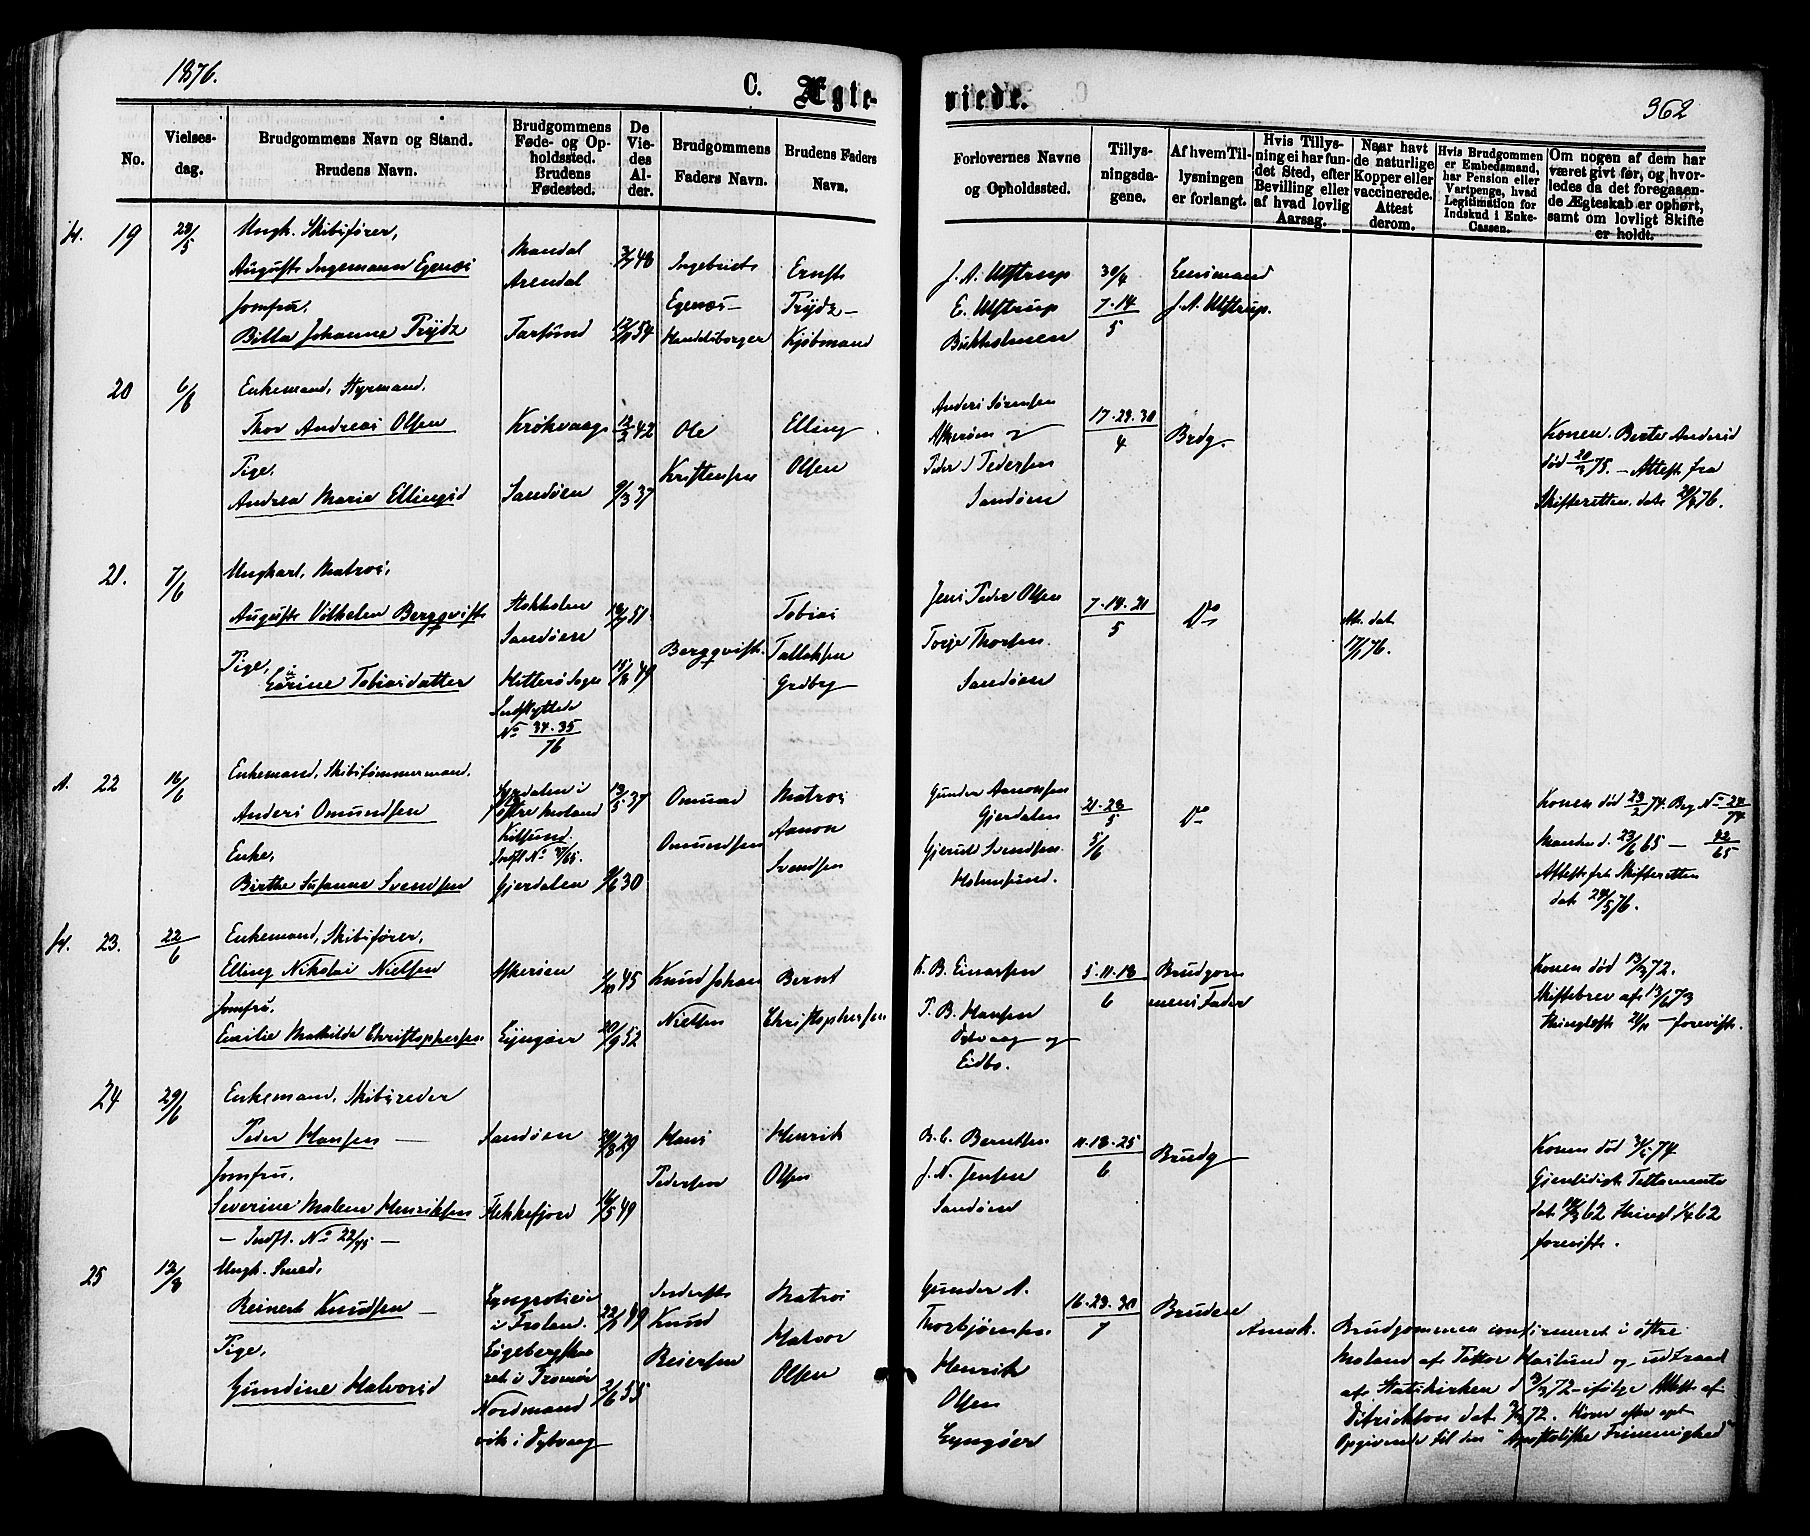 1876.
C. Ægte-
viede.
362
No.
Vielses-
dag.
Brudgommens Navn og Stand.
Brudens Navn.
Brudgommens
Føde- og Op-
holdssted.
Brudens
Fødested.
De
Vie-
des
Al-
der.
Brudgommens
Faders Navn.
Brudens Faders
Navn.
Forlovernes Navne
og Opholdssted.
Tillys-
ningsda-
gene.
Af hvem Til-
lysningen
er forlangt.
Hvis Tillys-
ning ei har fun-
det Sted, efter
Bevilling eller
af hvad lovlig
Aarsag.
Naar havt
de naturlige
Kopper eller
vaccinerede.
Attest
derom.
Hvis Brudgommen
er Embedsmand,
har Pension eller
Vartpenge, hvad
Legitimation for
Indskud i Enke-
Cassen.
Om nogen af dem har
været givt før, og hvor-
ledes da det foregaaen-
de Ægteskab er ophørt,
samt om lovligt Skifte
er holdt.
19
28/5
Ungk. Skibsfører,
August Ingemann Egenæs
Jomfru,
Billa Johanne Trydz
Mandal
Arendal
Farsund
48
54
Ingebrigt
Egenæs-
Handelsborger
Ernst
Trydz-
Kjøbmand
J. A. Ulstrup
E. Ulstrup
30/4
7-14
5
J. A. Ulstrup.
20
6/6
Enkemand, Styrmand,
Thor Andreas Olsen
Pige,
Andrea Marie Ellingsd
Krokvaag
Sandøen
12/2 42
9/3 37
Ole
Kristensen
Elling
Olsen
Anders Sørensen
Askerøen og
Peder Pedersen
Sandøen
17-23-30
4
Brdg.
Konen Berte Andersd
død 20/3 75. - Attest fra
Skifteretten dat 76.
21.
7/6
Ungkarl, Matros,
August Vilhelm Bergqvist
Pige,
Tobiasdatter
Stokholm
Sandøen
Hitterø Sogn
Indflyttede
No 34-35
76
51
49
Bergqvist.
Tobias
Tallaksen
Jens Peder Olsen
Torje Thorsen
Sandøen
7-14-21
5
Do
Att. dat
76.
22
16/6
Enkemand, Skibstømmermand,
Anders Omundsen
Enke,
Birthe Susanne Svendsen
i
østre Moland
Kilsund.
Gjerdalen
13/5 37
9/6 30
Omund
Omundsen
Matros
Aanon
Svendsen
Gunder Aanonsen
Gjerdalen
Svendsen
Holmsund.
21-28
5
5/6
Do
Konen død 23/2 74. Beg No
74
Manden d. 23/6 65 - 42
65
Attest fra Skifteretten
dat 76.
23.
22/6
Enkemand, Skibsfører,
Elling Nikolai Nielsen
Jomfru,
Emilie Mathilde Christophersen
Askerøen
Lyngøer
45
20/9 52
Knud Johan
Nielsen
Bernt
Christophersen
K. B. Einarsen
T. B. Hansen
Dybvaag og
Eidbo.
5-11-18
6
Brudgom
mens Fader
Konen død 13/3 72.
Skiftebrev af 13/6 73
Thinglæst - forevist.
24
29/6
Enkemand, Skibsreder
Peder Hansen -
Jomfru,
Severine Malene Henriksen
- Indfl. No 22/45 -
Sandøen
Flekkefjord
29
16/5 49
Hans
Pedersen
Henrik
Olsen
B. C. Berntsen
J. N. Jensen
Sandøen
11-18-25
6
Brudg
Konen død 74
Gjensidigt Testamente
dat 62 Thingl 62
forevist.
25
13/8
Ungk. Smed,
Reinert Knudsen -
Pige,
Gundine Halvorsd
i Froland.
i Tromø
Nordmand
vik i Dybvaag
49
2/6 55
Inderst
Knud
Reiersen
Matros
Halvor
Olsen
Gunder A.
Thorbjørnsen
Henrik
Olsen
Lyngøer
16-23-30
7
Bruden
Anmk.
Brudgommen confirmeret i østre
Moland af Pastor Haslund og udtraadt
af Statskirken d 72 - ifølge Attest af
Ditrichson dat 72. Hører efter eget
Opgivende til den "Apostoliske Frimenighed"